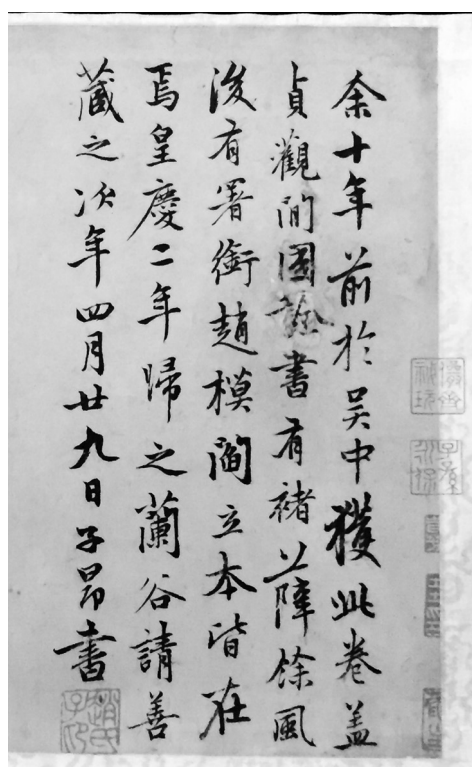 余十年前於吴中獲此卷盖
貞觀間國詮書有褚薛餘風
後有署銜趙模閻立本皆在
焉皇慶二年歸之蘭谷請善
藏之次年四月廿九日子昂書
趙氏子昂